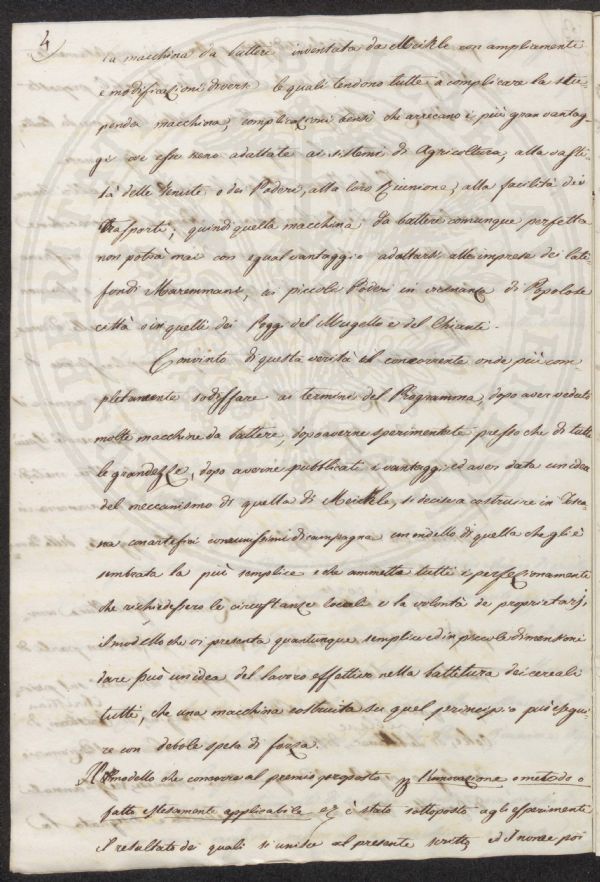 4
la macchina da battere inventata da Meikle con ampliamenti
e modificazioni diverse le quali tendono tutte a complicare la stu-
penda macchina, complicazioni bensì che arrecano i più gran vantag-
gi ove esse sieno adattate ai sistemi di Agricoltura, alla vasti-
tà delle Tenute o dei Poderi, alla loro Riunione, alla facilità dei
trasporti; quindi quella macchina da battere comunque perfetta
non potrà mai con egual vantaggio adattarsi alle imprese dei lati-
fondi Maremmani, ai piccoli Poderi in vicinanza di Popolose
città o in quelli dei Poggi del Mugello e del Chianti.
Convinto di questa verità il concorrente onde più com-
pletamente sodisfare ai termini del Programma, dopo aver veduto
molte macchine da battere, dopo averne sperimentate presso che di tutte
le grandezze, dopo averne pubblicati i vantaggi ed aver data un idea
del meccanismo di quella di Meikle, si decise a costruire in Tosca-
na con artefici comunissimi di campagna un modello di quella che gli è
sembrata la più semplice e che ammetta tutti i perfezionamenti
che richiedessero le circostanze locali e la volontà de proprietarj,
il modello che vi presenta quantunque semplice ed in piccole dimensioni
dare può un idea del lavoro effettivo nella battitura dei cereali
tutti, che una macchina costruita su quel principio può esegui-
re con debole spesa di forza.
Il modello che concorre al premio proposto p l'innovazione o metodo o
fatto estesamente applicabile è stato sottoposto agli esperimenti
il resultato dei quali si unisce al presente scritto, ed il nome poi